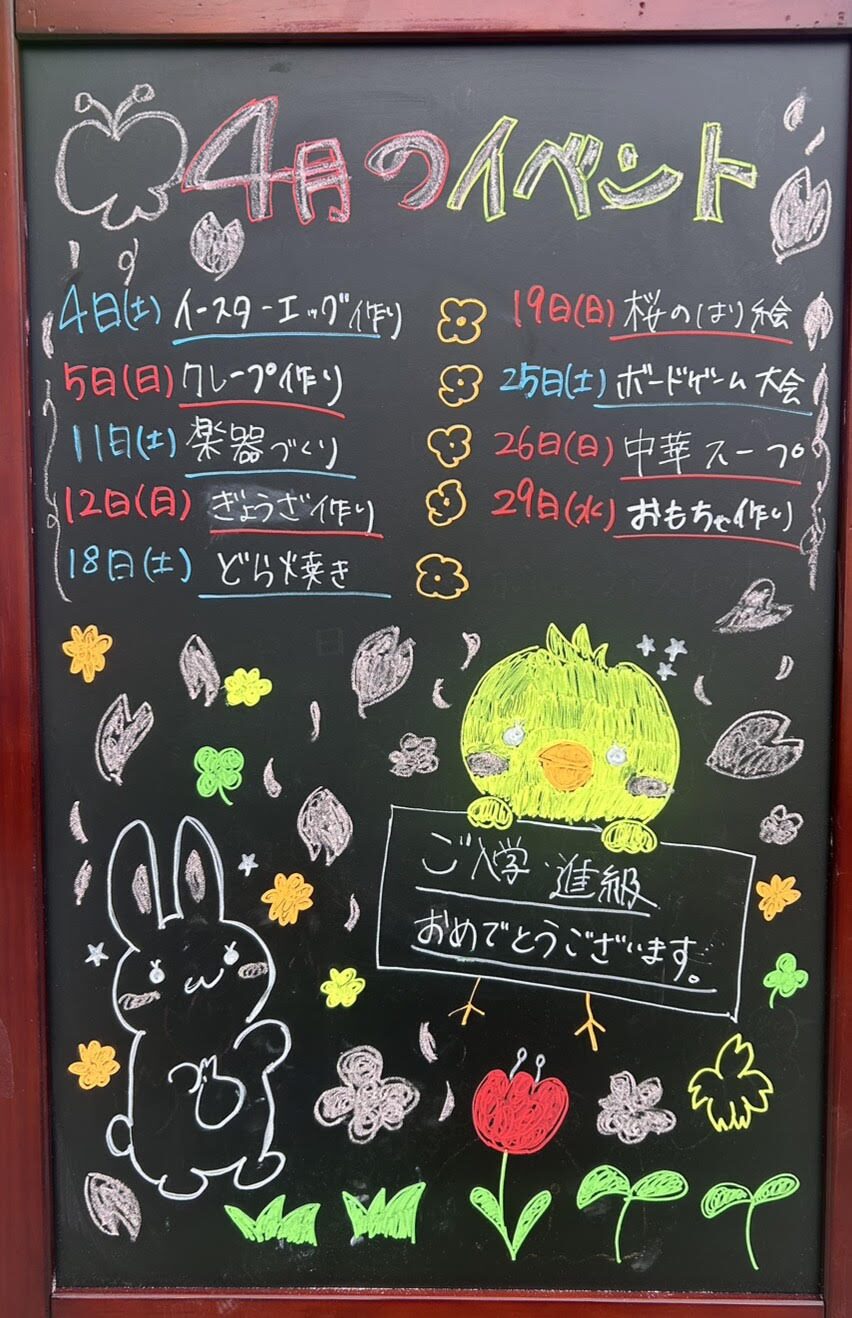 4月のイベント
4日(土) イースターエッグ作り
5日(日) クレープ作り
11日(土) 楽器づくり
12日(日) ぎょうざ作り
18日(土) どら焼き
19日(日) 桜のはり絵
25日(土) ボードゲーム大会
26日(日) 中華スープ
29日(水) おもちゃ作り
ご入学・進級
おめでとうございます。